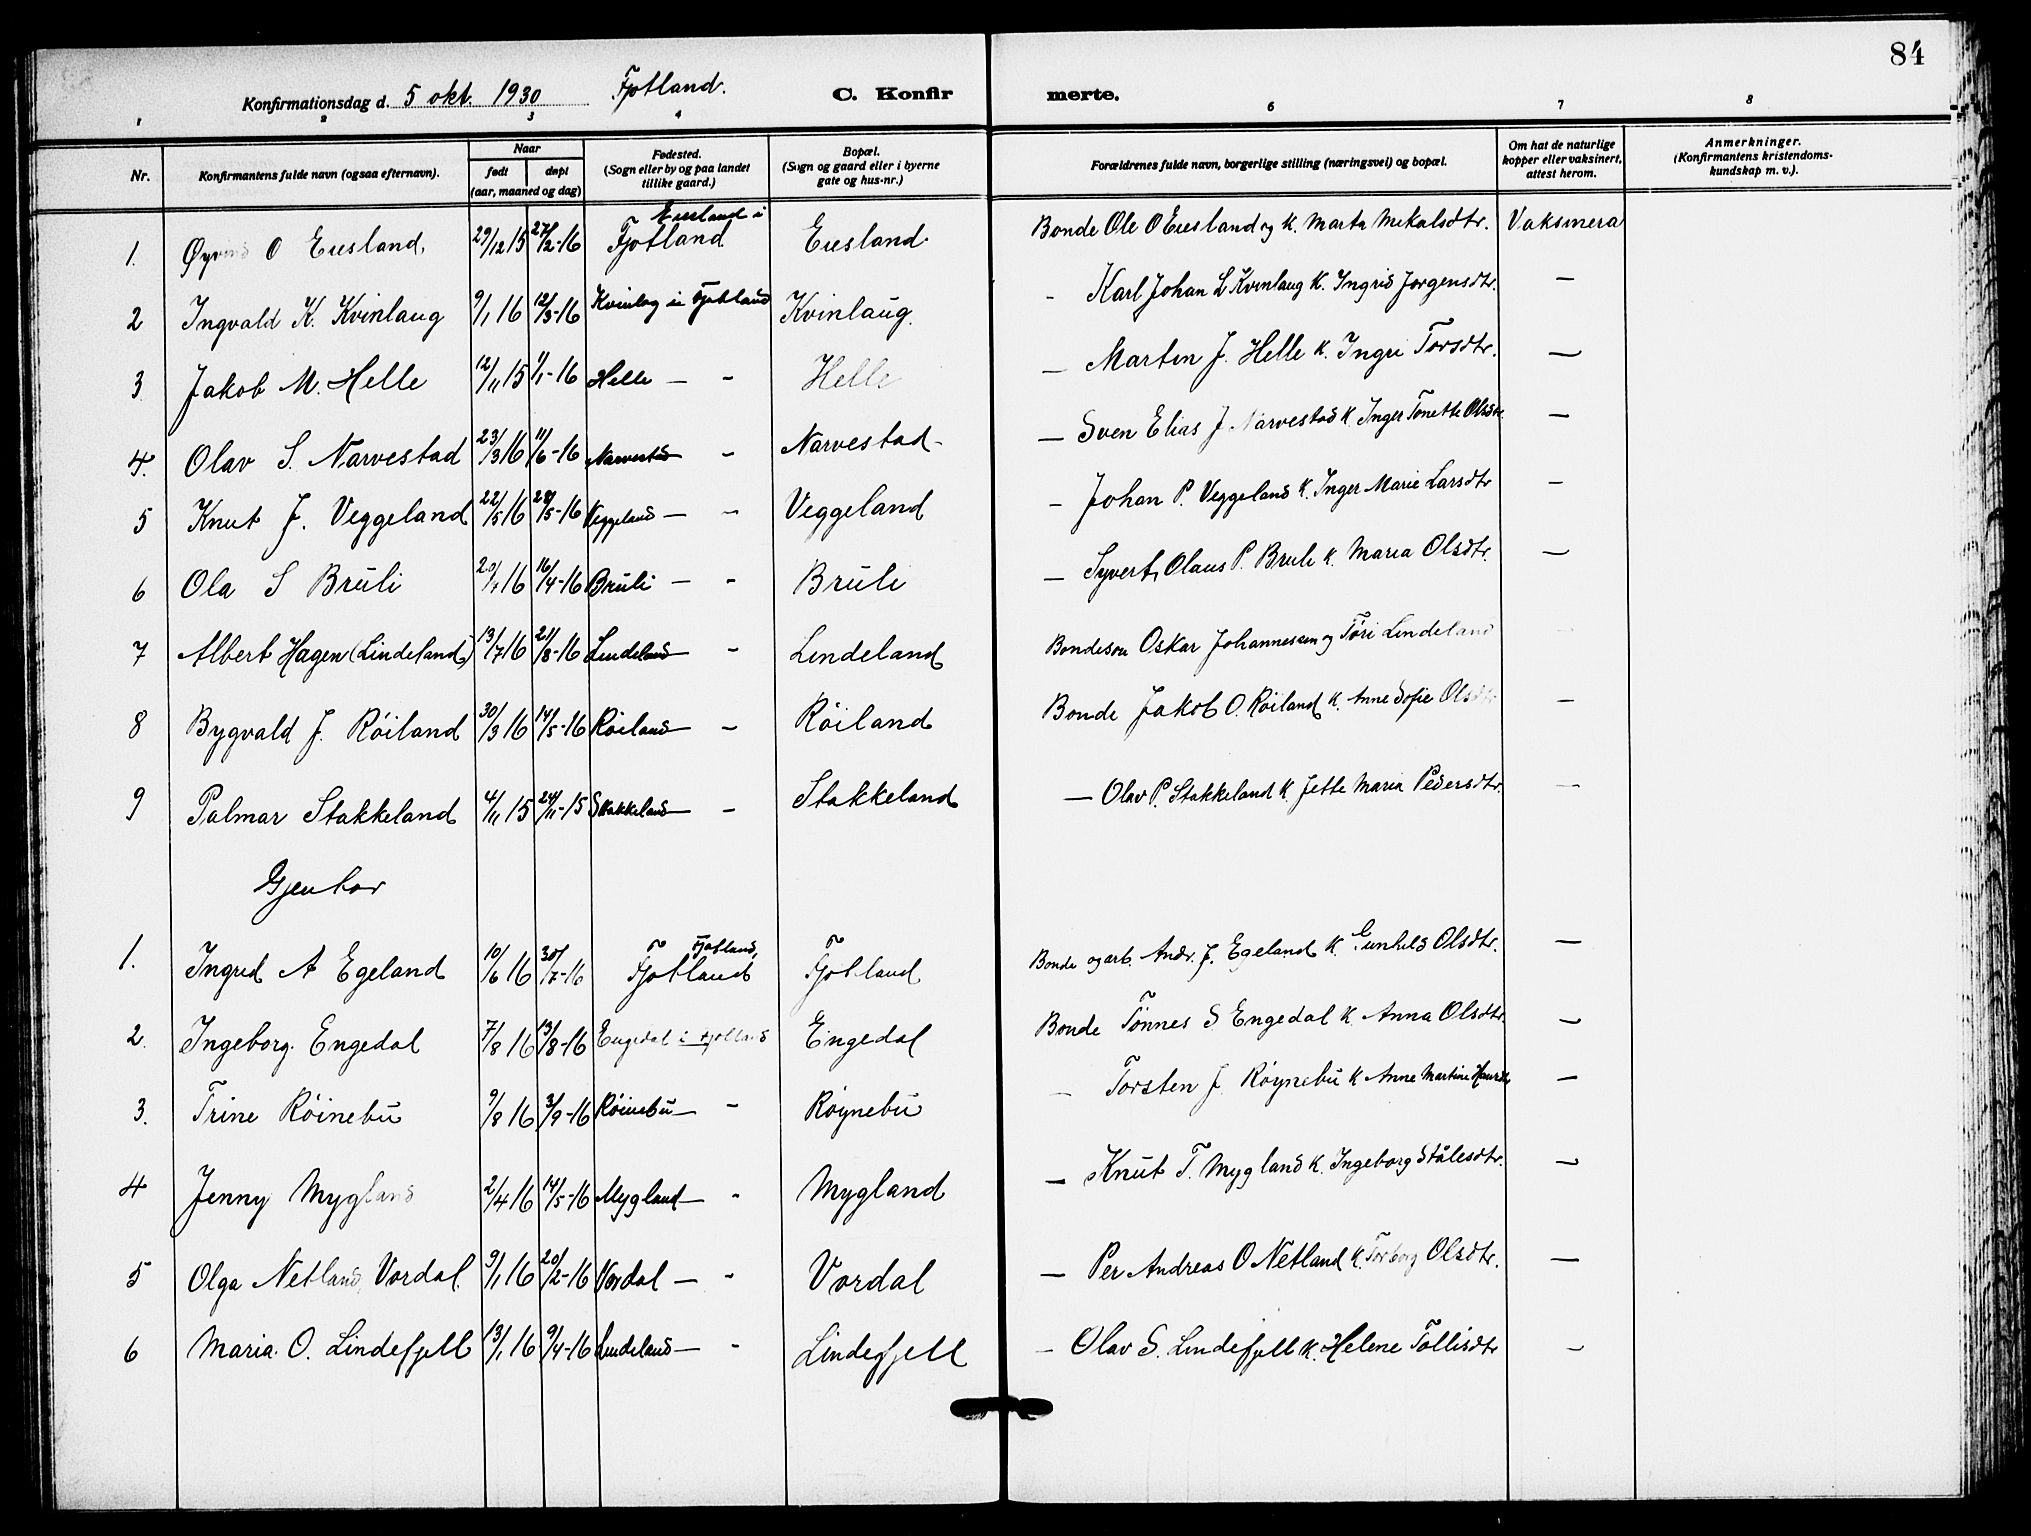 84
Konfirmationsdag d. 5 okt. 1930 Fjotland. C. Konfirmerte.
1 2 3 4 6 7 8
Nr. Konfirmantens fulde navn (ogsaa efternavn). Naar født døpt (aar, maaned og dag) Fødested. (Sogn eller by og paa landet tillike gaard.) Bopæl. (Sogn og gaard eller i byerne gate og hus-nr.) Forældrenes fulde navn, borgerlige stilling (næringsvei) og bopæl. Om hat de naturlige kopper eller vaksinert, attest herom. Anmerkninger. (Konfirmantens kristendomskundskap m. v.).
1. Øyvind O Eiesland, 29/12 15 27/2-16 Eiesland i Fjotland Eiesland. Bonde Ole O Eiesland og k. Marta Mikalsdtr. Vaksinera
2 Ingvald K. Kvinlaug 9/1 16 12/3-16 Kvinlog i Fjotland Kvinlaug. - Karl Johan L Kvinlaug k. Ingrid Jørgensdtr. —
3 Jakob M. Helle 12/11 15 1/1-16 Helle — - Helle — Martin J. Helle k. Ingri Torsdtr. —
4. Olav S. Narvestad 23/3 16 11/6-16 Narvestad - Narvestad — Sven Elias J. Narvestad k Inger Tonette Olsdtr. —
5 Knut J. Veggeland 22/5 16 28/5-16 Veggeland — - Veggeland - Johan P. Veggeland k. Inger Marie Larsdtr —
6 Ola S Bruli 20/1 16 16/4-16 Bruli — - Bruli — Syvert Olaus P. Bruli k. Maria Olsdtr. —
7 Albert Hagen (Lindeland) 13/7 16 21/8-16 Lindeland - Lindeland Bondeson Oskar Johannessen og Tøri Lindeland —
8 Bygvald J. Røiland 30/3 16 14/5-16 Røiland — - Røiland Bonde Jakob O. Røiland k. Anne Sofie Olsdtr —
9 Palmar Stakkeland 4/11 15 24/11-15 Stakkeland — - Stakkeland — Olav P. Stakkeland k. Jette Maria Pedersdtr. —
Gjentor
1. Ingrid A Egeland 10/6 16 30/7-16 Fjotland, Fjotland Fjotland Bonde og arb. Andr. J. Egeland k. Gunhild Olsdtr. —
2. Ingeborg Engedal 7/8 16 13/8-16 Engedal i Fjotland Engedal Bonde Tønnes S Engedal k. Anna Olsdtr. —
3. Trine Røinebu 9/8 16 3/9-16 Røinebu — - Røynebu — Torsten J Røynebu k Anne Martine —
4 Jenny Mygland 2/4 16 14/5-16 Mygland — - Mygland — Knut T. Mygland k. Ingeborg Stålesdtr. —
5 Olga Netland, Vordal 9/1 16 20/2-16 Vordal — - Vordal — Per Andreas O Netland k. Torborg Olsdtr. —
6 Maria O. Lindefjell 13/1 16 9/4-16 Lindeland — - Lindefjell — Olav S. Lindefjell k. Helene Tollisdtr —